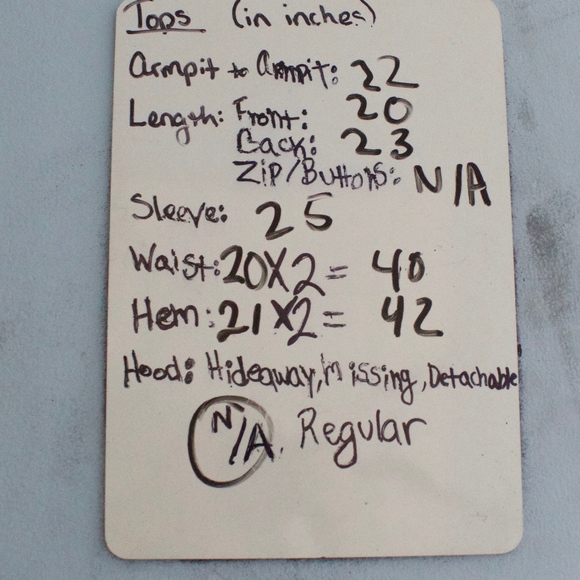 Tops (in inches)
Armpit to Armpit: 22
Length: Front: 20
Back: 23
Zip/Buttons: N/A
Sleeve: 25
Waist: 20X2 = 40
Hem: 21X2 = 42
Hood: Hideaway, Missing, Detachable
N/A, Regular